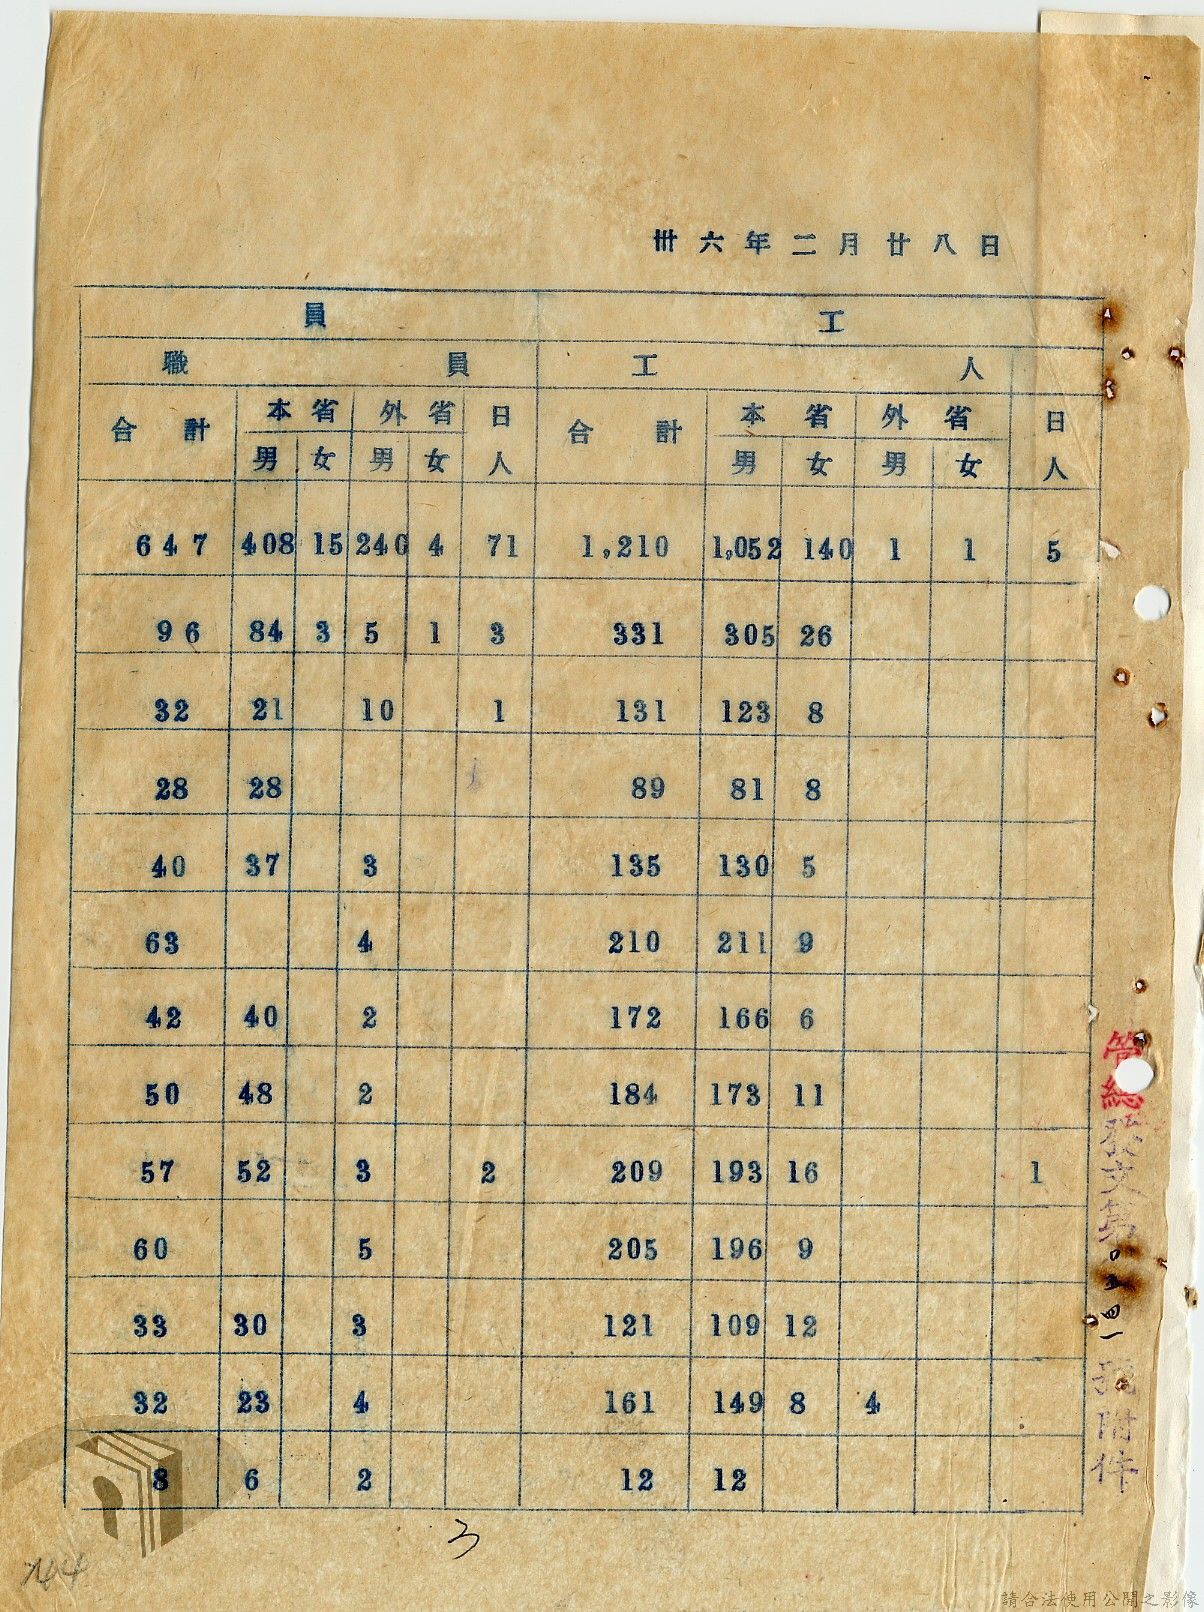 卅六年二月廿八日
員 工
職 員 工 人
合計 本省 外省 日人 合計 本省 外省 日人
男 女 男 女 男 女 男 女
647 408 15 240 4 71 1,210 1,052 140 1 1 5
96 84 3 5 1 3 331 305 26
32 21 10 1 131 123 8
28 28 89 81 8
40 37 3 135 130 5
63 4 210 211 9
42 40 2 172 166 6
50 48 2 184 173 11
57 52 3 2 209 193 16 1
60 5 205 196 9
33 30 3 121 109 12
32 23 4 161 149 8 4
8 6 2 12 12
3
744
管總發文第0五四一號附件
請合法使用公開之影像